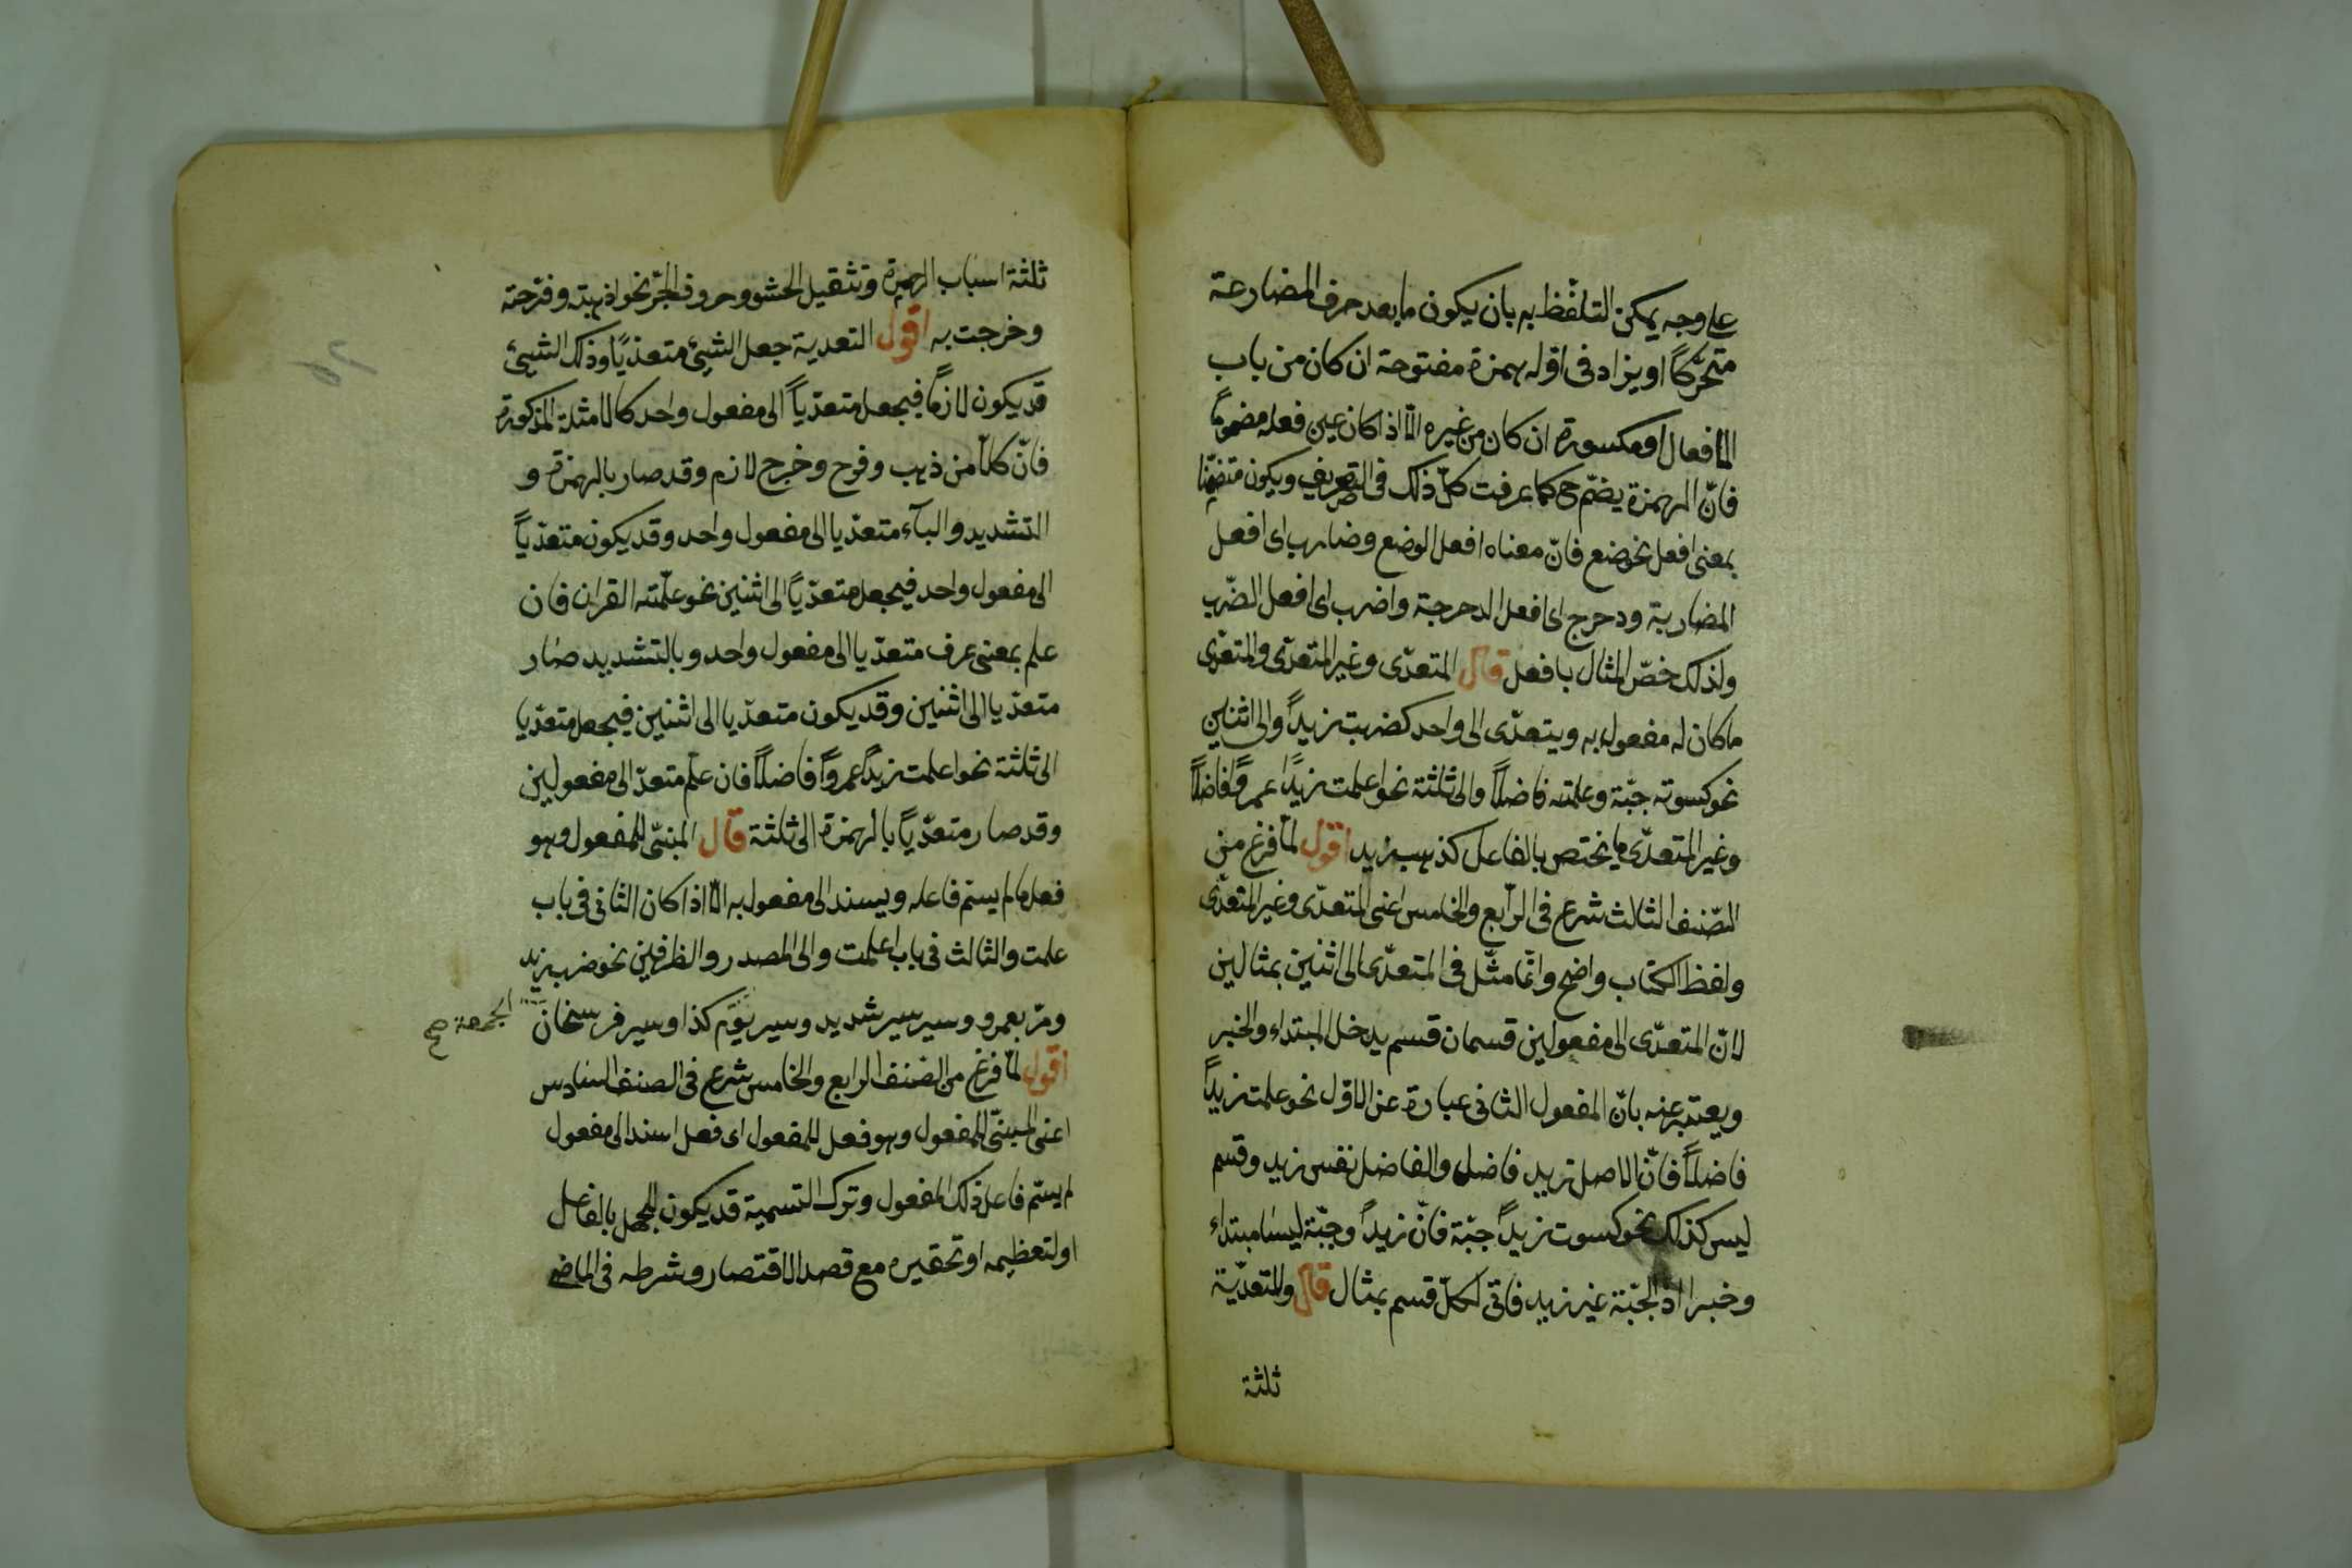 على وجه يمكن التلفّظ به بان يكون ما بعد حرف المضارعة
متحرّكاً او يزاد فى اوّله همزة مفتوحة ان كان من باب
الافعال او مكسورة ان كان من غيره الّا اذا كان عين فعله مضموماً
فانّ الهمزة يضمّ ح كما عرفت كلّ ذلك فى التصريف ويكون متضمّنا
بمعنى افعل نحو ضع فانّ معناه افعل الوضع وضارب اى افعل
المضاربة ودحرج اى افعل الدحرجة واضرب اى افعل الضّرب
ولذلك خصّ المثال بافعل قال المتعدّى وغير المتعدّى والمتعدّى
ما كان له مفعول به ويتعدّى الى واحد كضربت زيداً والى اثنين
نحو كسوته جبّة وعلمته فاضلاً والى ثلثة نحو اعلمت زيداً عمرواً فاضلاً
وغير المتعدّى ما يختص بالفاعل كذهب زيد اقول لمّا فرغ من
الصّنف الثالث شرع فى الرّابع والخامس اعنى المتعدّى وغير المتعدّى
ولفظ الكتاب واضح وانّما مثّل فى المتعدّى الى اثنين بمثالين
لانّ المتعدّى الى مفعولين قسمان قسم يدخل المبتداء والخبر
ويعتبر عنه بانّ المفعول الثانى عبارة عن الاوّل نحو علمت زيداً
فاضلاً فانّ الاصل زيد فاضل والفاضل نفس زيد وقسم
ليس كذلك نحو كسوت زيداً جبّة فانّ زيداً وجبّة ليسا مبتداء
وخبرا اذ الجبّة غير زيد فاتى لكلّ قسم بمثال قال وللتعدّية
ثلثة
ثلثة اسباب الهمزة وتثقيل الحشو وحروف الجرّ نحو اذهبته وفرّحته
وخرجت به اقول التعدية جعل الشيئ متعدّيًا وذلك الشيئ
قد يكون لازمًا فيجعل متعدّياً الى مفعول واحد كالامثلة المذكورة
فانّ كلّا من ذهب وفرح وخرج لازم وقد صار بالهمزة و
التشديد والبآء متعدّيا الى مفعول واحد وقد يكون متعدّياً
الى مفعول واحد فيجعل متعدّيًا الى اثنين نحو علّمته القران فان
علم بمعنى عرف متعدّيا الى مفعول واحد وبالتشديد صار
متعدّيا الى اثنين وقد يكون متعدّيا الى اثنين فيجعل متعدّيا
الى ثلثة نحو اعلمت زيداً عمرواً فاضلاً فان علم متعدّ الى مفعولين
وقد صار متعدّيًا بالهمزة الى ثلثة قال المبنىّ للمفعول وهو
فعل ما لم يسمّ فاعله ويسند الى مفعول به الّا اذا كان الثانى فى باب
علمت والثالث فى باب اعلمت والى المصدر والظرفين نحو ضرب زيد
ومرّ بعمرو وسير سير شديد وسير يوم كذا وسير فرسخان
الجمعة صح
اقول لمّا فرغ من الصّنف الرابع والخامس شرع فى الصنف السّادس
اعنى المبنىّ للمفعول وهو فعل للمفعول اى فعل اسند الى مفعول
لم يسمّ فاعل ذلك المفعول وترك التسمية قد يكون للجهل بالفاعل
او لتعظيمه او تحقيره مع قصد الاقتصار وشرطه فى الماضى